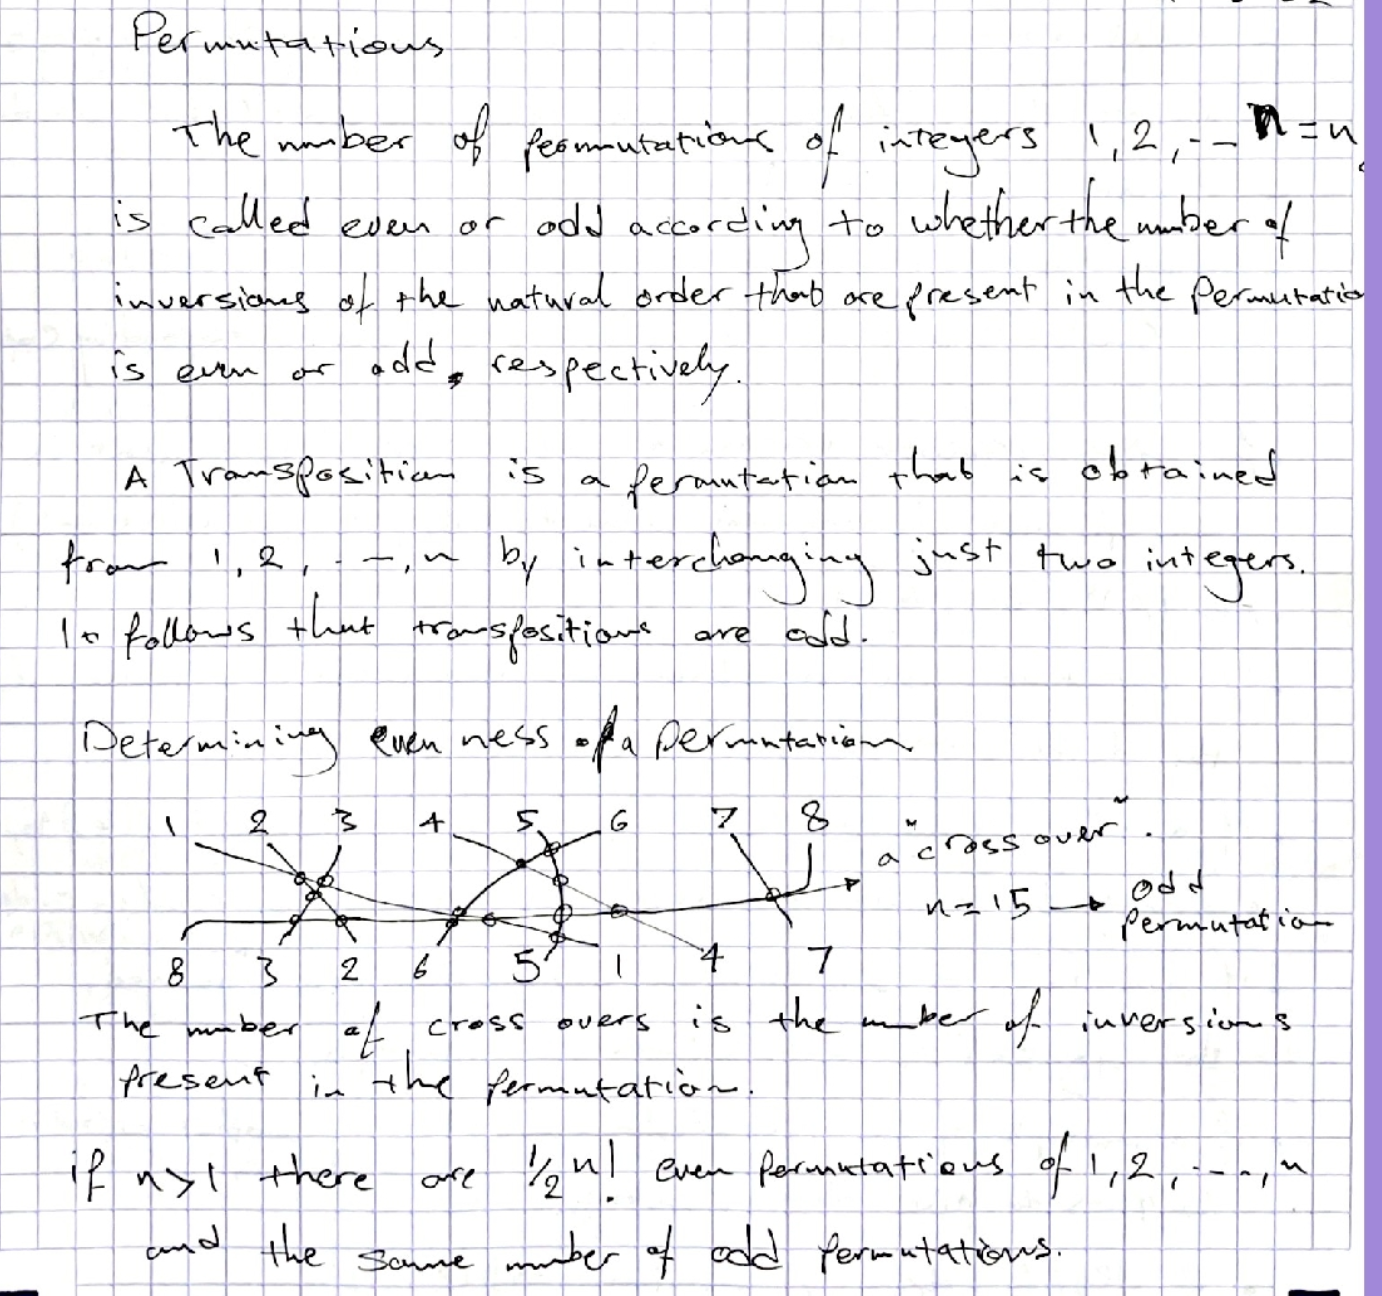 Permutations
The number of permutations of integers 1, 2, -- n = n
is called even or odd according to whether the number of
inversions of the natural order that are present in the permutatio
is even or odd, respectively.
A Transposition is a permutation that is obtained
from 1, 2, . --, n by interchanging just two integers.
It follows that transpositions are odd.
Determining evenness of a permutation
1 2 3 4 5 6 7 8
a "cross over".
n = 15 → odd
permutation
8 3 2 6 5 1 4 7
The number of cross overs is the number of inversions
present in the permutation.
if n>1 there are 1/2 n! even permutations of 1, 2, ---, n
and the same number of odd permutations.